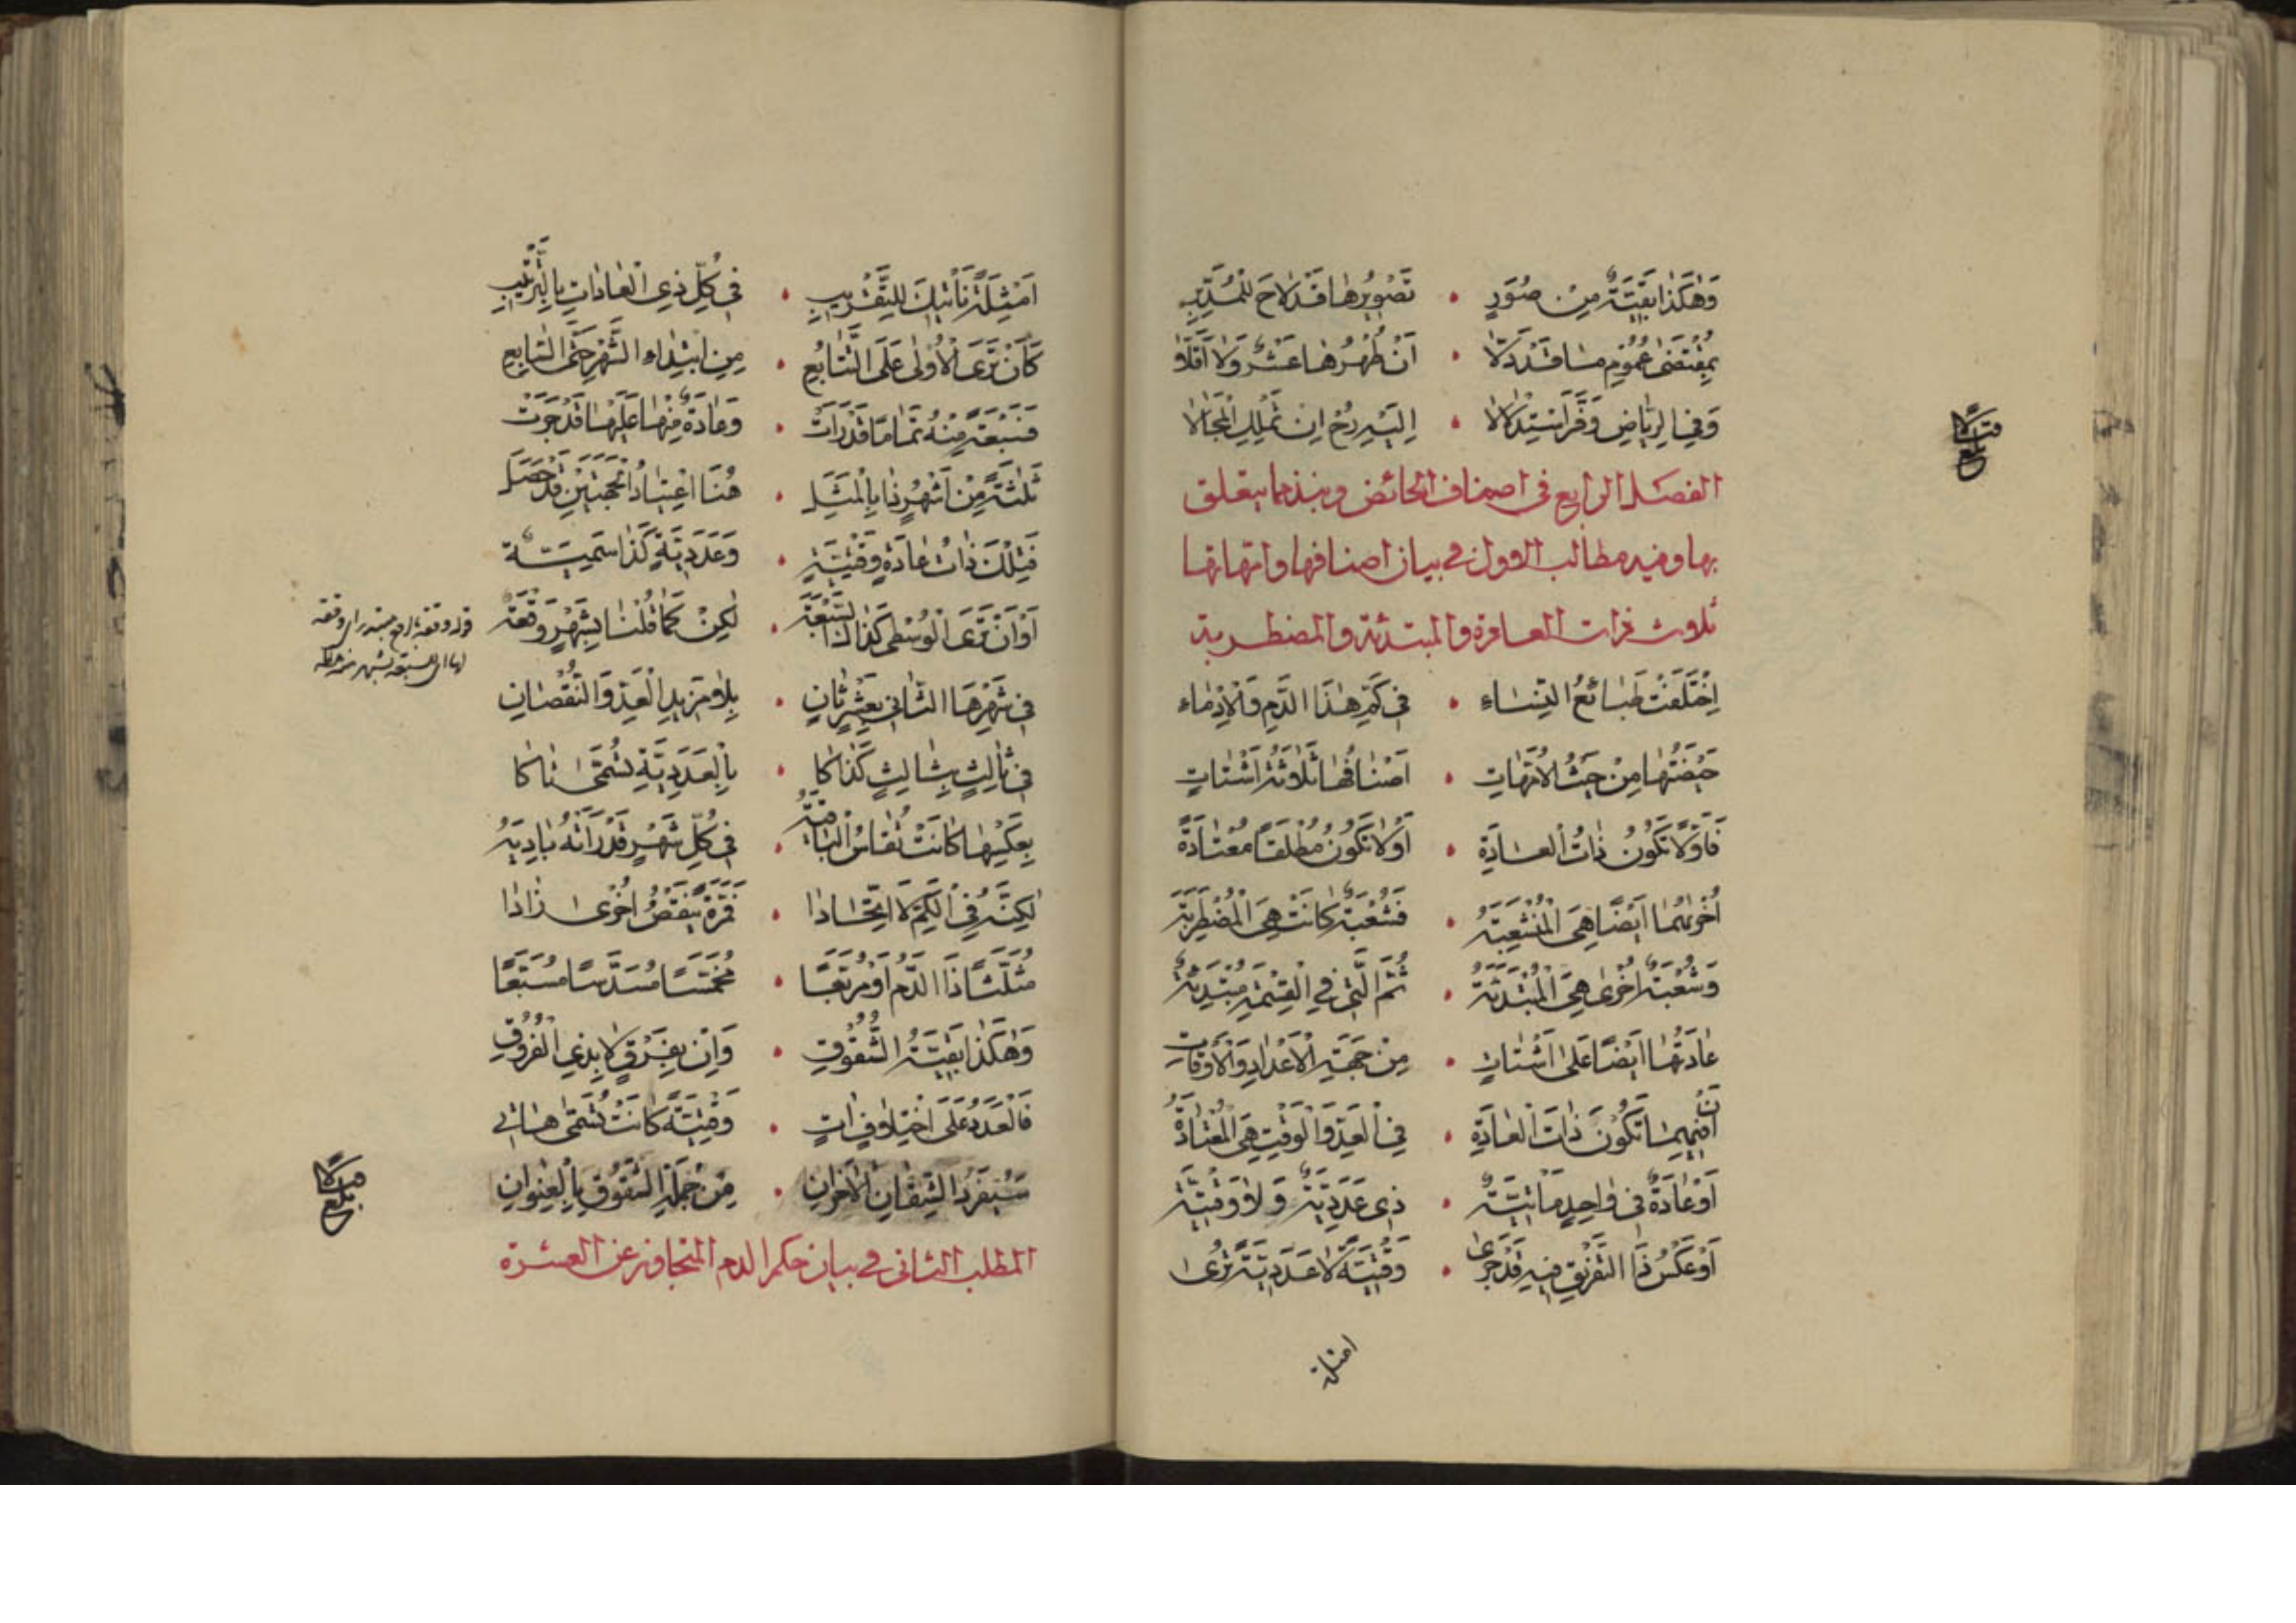 وَهٰكَذَا بَقِيَّةٌ مِنْ صُوَرٍ • تَصْوِيرُهَا قَدْ لَاحَ لِلْمُدَبِّرِ
بِمُقْتَضٰى عُمُومِ مَا قَدْ دَلَّا • اَنْ طُهْرُهَا عَشْرٌ وَلَا اَقَلَّا
وَفِي الرِّيَاضِ وَفَّرَ اسْتِدْلَالَا • اِلَيْهِ رُحْ اِنْ تَمْلِكِ الْمَجَالَا
الفصل الرابع في اصناف الحائض ونبذ مما يتعلق
بها وفيه مطالب الاول في بيان اصنافها وانها
ثلاث ذات العادة والمبتدئة والمضطربة
اِخْتَلَفَتْ طَبَائِعُ النِّسَاءِ • فِي كَمِّ هٰذَا الدَّمِ وَالْاِدْمَاءِ
حَيْضَتُهَا مِنْ حَيْثُ الْاُمَّهَاتِ • اَصْنَافُهَا ثَلَاثَةٌ اَشْتَاتٍ
فَاَوَّلًا تَكُونُ ذَاتُ الْعَادَةِ • اَوْ لَا تَكُونُ مُطْلَقًا مُعْتَادَةً
اُخْرٰهُمَا اَيْضًا هِيَ الْمُنْشَعِبَةُ • فَشُعْبَةٌ كَانَتْ هِيَ الْمُضْطَرِبَةُ
وَشُعْبَةٌ اُخْرٰى هِيَ الْمُبْتَدِئَةُ • ثُمَّ الَّتِي فِي الْقِسْمَةِ مُبْتَدِئَةٌ
عَادَتُهَا اَيْضًا عَلٰى اَشْتَاتٍ • مِنْ جِهَةِ الْاَعْدَادِ وَالْاَوْقَاتِ
اَنْ فِيهِمَا تَكُونُ ذَاتَ الْعَادَةِ • فِي الْعَدِّ وَالْوَقْتِ هِيَ الْمُعْتَادَةُ
اَوْ عَادَةٌ فِي وَاحِدٍ مَاتِيَّةٌ • ذِي عَدَدِيَّةٌ وَلَا وَقْتِيَّةٌ
اَوْ عَكْسُ ذَا التَّفْرِيقِ فِيهِ قَدْ جَرٰى • وَقْتِيَّةً لَا عَدَدِيَّةً تُرٰى
امثلة
اَمْثِلَةٌ تَأْتِيكَ لِلتَّقْرِيبِ • فِي كُلِّ ذِي الْعَادَاتِ بِالتَّرْتِيبِ
كَاَنْ تَرَى الْاُوْلٰى عَلَى التَّتَابُعِ • مِنِ ابْتِدَاءِ الشَّهْرِ حَتَّى السَّابِعِ
فَسَبْعَةً مِنْهُ تَمَامًا قَدْ رَاَتْ • وَعَادَةٌ مِنْهَا عَلَيْهَا قَدْ جَرَتْ
ثَلٰثَةً مِنْ اَشْهُرٍ ذَا بِالْمَثَلِ • هُنَا اعْتِبَارُ الْحَجَّتَيْنِ قَدْ حَصَلَ
فَتِلْكَ ذَاتُ عَادَةٍ وَقْتِيَّةٍ • وَعَدَدِيَّةٍ كَذَا سَمِيَّةٌ
اَوْ اَنْ تَرَى الْوُسْطٰى كَذَاكَ السَّبْعَةَ • لٰكِنْ كَمَا قُلْنَا بِشَهْرٍ وَقْعَةٌ
قوله وقعة بالرفع مبتدء اي وقعة
فِي شَهْرِهَا الثَّانِي بِعَشْرٍ ثَانٍ • بِلَا مَزِيدِ الْعَدِّ وَالنُّقْصَانِ
فِي ثَالِثٍ بِثَالِثٍ كَذَاكَا • بِالْعَدَدِيَّةِ تُسَمّٰى ذَاكَا
بِعَكْسِهَا كَانَتْ تُقَاسُ الْبَاقِيَةُ • فِي كُلِّ شَهْرٍ قَدْ رَاَتْهُ بَادِيَةً
لٰكِنَّهُ فِي الْكَمِّ لَا اتِّحَادَا • فَمَرَّةً يَنْقُصُ اُخْرٰى زَادَا
مُثَلَّثًا ذَا الدَّمُ اَوْ مُرَبَّعًا • مُخَمَّسًا مُسَدَّسًا مُسَبَّعًا
وَهٰكَذَا بَقِيَّةُ الشُّقُوقِ • وَاِنْ بِفَرْقٍ لَا بِذِي الْفُرُوقِ
فَالْعَدَدُ عَلَى اخْتِلَافٍ اٰتٍ • وَقْتِيَّةً كَانَتْ تُسَمّٰى هَاتِي
سَيُفْرَدُ الشِّقَّانِ الْاٰخَرَانِ • مِنْ جُمْلَةِ الشُّقُوقِ بِالْعِنْوَانِ
المطلب الثاني في بيان حكم الدم المتجاوز عن العشرة